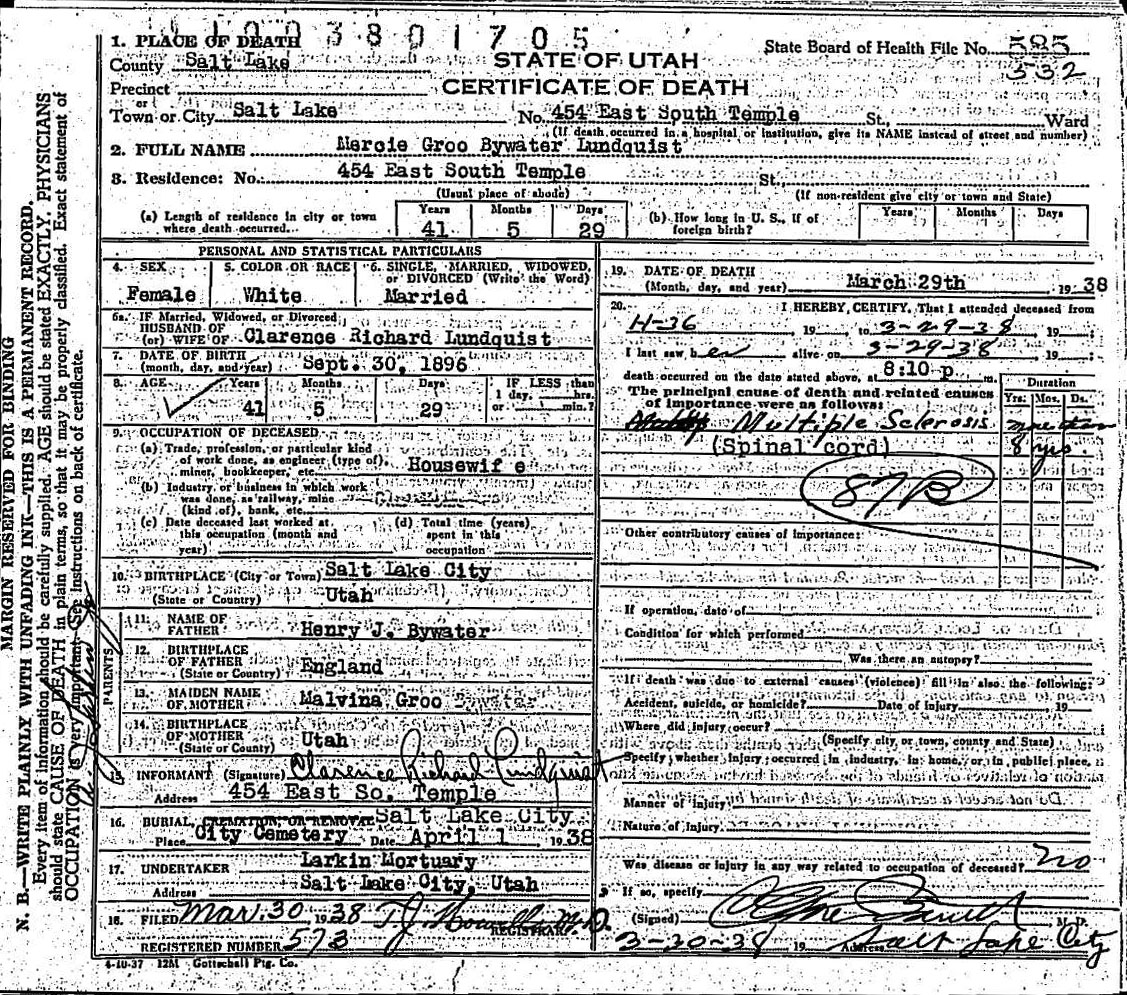 1003801705
1. PLACE OF DEATH
County Salt Lake
Precinct
or
Town or City Salt Lake
State Board of Health File No. 585
532
STATE OF UTAH
CERTIFICATE OF DEATH
No. 454 East South Temple St., Ward
(If death occurred in a hospital or institution, give its NAME instead of street and number)
2. FULL NAME Mercie Groo Bywater Lundquist
3. Residence: No. 454 East South Temple St.
(Usual place of abode) (If non-resident give city or town and State)
(a) Length of residence in city or town where death occurred Years 41 Months 5 Days 29
(b) How long in U. S., if of foreign birth? Years Months Days
PERSONAL AND STATISTICAL PARTICULARS
4. SEX Female
5. COLOR OR RACE White
6. SINGLE, MARRIED, WIDOWED, or DIVORCED (Write the Word) Married
6a. IF Married, Widowed, or Divorced
HUSBAND OF
(or) WIFE OF Clarence Richard Lundquist
7. DATE OF BIRTH
(month, day, and year) Sept. 30, 1896
8. AGE Years 41 Months 5 Days 29 IF LESS than 1 day, hrs. or min.?
9. OCCUPATION OF DECEASED
(a) Trade, profession, or particular kind of work done, as engineer (type of), miner, bookkeeper, etc. Housewife
(b) Industry or business in which work was done, as railway, mine (kind of), bank, etc.
(c) Date deceased last worked at this occupation (month and year)
(d) Total time (years) spent in this occupation
10. BIRTHPLACE (City or Town) Salt Lake City
(State or Country) Utah
PARENTS
11. NAME OF FATHER Henry J. Bywater
12. BIRTHPLACE OF FATHER (State or Country) England
13. MAIDEN NAME OF MOTHER Malvina Groo Bywater
14. BIRTHPLACE OF MOTHER (State or County) Utah
15. INFORMANT (Signature) Clarence Richard Lundquist
Address 454 East So. Temple
16. BURIAL, CREMATION, OR REMOVAL Salt Lake City
Place City Cemetery Date April 1 1938
17. UNDERTAKER Larkin Mortuary
Address Salt Lake City, Utah
18. FILED Mar. 30 1938 T.J. Howells M.D.
REGISTRAR
REGISTERED NUMBER 573
4-10-37 12M Gottschall Ptg. Co.
19. DATE OF DEATH
(Month, day, and year) March 29th 1938
20. I HEREBY CERTIFY, That I attended deceased from
H-36 19 to 3-29-38 19
I last saw her alive on 3-29-38 19
death occurred on the date stated above, at 8:10 p m.
The principal cause of death and related causes of importance were as follows:
Duration
Yrs. Mos. Ds.
Multiple Sclerosis more than
(Spinal cord) 8 yrs.
87B
Other contributory causes of importance:
If operation, date of
Condition for which performed
Was there an autopsy?
If death was due to external causes (violence) fill in also the following:
Accident, suicide, or homicide? Date of injury 19
Where did injury occur?
(Specify city or town, county and State)
Specify whether injury occurred in industry, in home, or in public place.
Manner of injury
Nature of injury
Was disease or injury in any way related to occupation of deceased? no
If so, specify
(Signed) M. D.
3-30-38 19 Address Salt Lake City
MARGIN RESERVED FOR BINDING
N. B.—WRITE PLAINLY WITH UNFADING INK—THIS IS A PERMANENT RECORD.
Every item of information should be carefully supplied. AGE should be stated EXACTLY. PHYSICIANS
should state CAUSE OF DEATH in plain terms, so that it may be properly classified. Exact statement of
OCCUPATION is very important. See instructions on back of certificate.